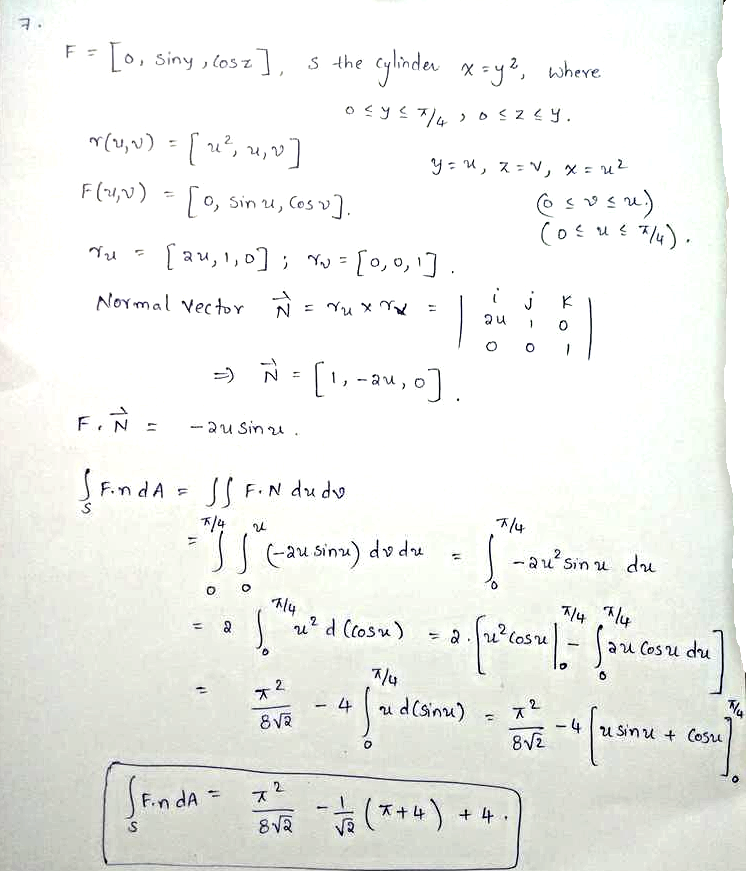 7.
F = [0, sin y, cos z], s the cylinder x = y², where
0 ≤ y ≤ π/4, 0 ≤ z ≤ y.
r(u,v) = [u², u, v]
y = u, z = v, x = u²
F(u,v) = [0, sin u, cos v].
(0 ≤ v ≤ u.)
(0 ≤ u ≤ π/4).
r_u = [2u, 1, 0] ; r_v = [0, 0, 1].
Normal vector N⃗ = r_u × r_v = | i j k ; 2u 1 0 ; 0 0 1 |
⇒ N⃗ = [1, -2u, 0].
F. N⃗ = -2u sin u.
∫_S F.n dA = ∫∫ F.N du dv
= ∫_0^{π/4} ∫_0^u (-2u sin u) dv du = ∫_0^{π/4} -2u² sin u du
= 2 ∫_0^{π/4} u² d(cos u) = 2.[u² cos u |_0^{π/4} - ∫_0^{π/4} 2u cos u du]
= π²/8√2 - 4 ∫_0^{π/4} u d(sin u) = π²/8√2 - 4[u sin u + cos u]_0^{π/4}
∫_S F.n dA = π²/8√2 - 1/√2 (π+4) + 4.